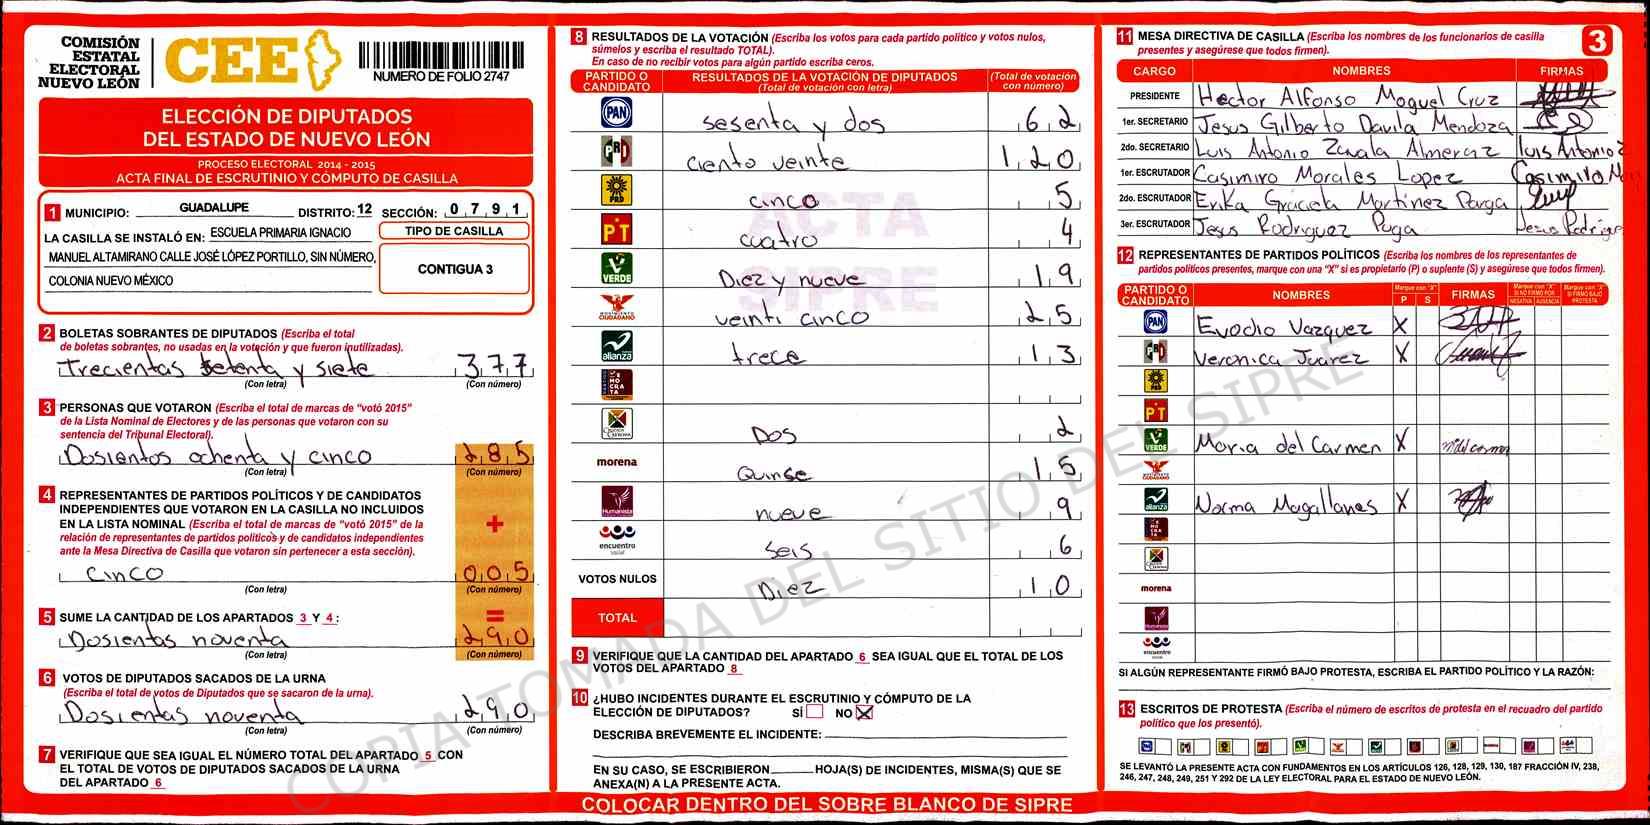 COMISIÓN
ESTATAL
ELECTORAL
NUEVO LEÓN
CEE
NUMERO DE FOLIO 2747
ELECCIÓN DE DIPUTADOS
DEL ESTADO DE NUEVO LEÓN
PROCESO ELECTORAL 2014 - 2015
ACTA FINAL DE ESCRUTINIO Y CÓMPUTO DE CASILLA
1 MUNICIPIO: GUADALUPE DISTRITO: 12 SECCIÓN: 0 7 9 1
LA CASILLA SE INSTALÓ EN: ESCUELA PRIMARIA IGNACIO
MANUEL ALTAMIRANO CALLE JOSÉ LÓPEZ PORTILLO, SIN NÚMERO,
COLONIA NUEVO MÉXICO
TIPO DE CASILLA
CONTIGUA 3
2 BOLETAS SOBRANTES DE DIPUTADOS (Escriba el total
de boletas sobrantes, no usadas en la votación y que fueron inutilizadas).
Trecientas setenta y siete 3 7 7
(Con letra) (Con número)
3 PERSONAS QUE VOTARON (Escriba el total de marcas de “votó 2015”
de la Lista Nominal de Electores y de las personas que votaron con su
sentencia del Tribunal Electoral).
Dosientos ochenta y cinco 2 8 5
(Con letra) (Con número)
4 REPRESENTANTES DE PARTIDOS POLÍTICOS Y DE CANDIDATOS
INDEPENDIENTES QUE VOTARON EN LA CASILLA NO INCLUIDOS
EN LA LISTA NOMINAL (Escriba el total de marcas de “votó 2015” de la
relación de representantes de partidos políticos y de candidatos independientes
ante la Mesa Directiva de Casilla que votaron sin pertenecer a esta sección).
+
cinco 0 0 5
(Con letra) (Con número)
5 SUME LA CANTIDAD DE LOS APARTADOS 3 Y 4 : =
Dosientos noventa 2 9 0
(Con letra) (Con número)
6 VOTOS DE DIPUTADOS SACADOS DE LA URNA
(Escriba el total de votos de Diputados que se sacaron de la urna).
Dosientas noventa 2 9 0
(Con letra) (Con número)
7 VERIFIQUE QUE SEA IGUAL EL NÚMERO TOTAL DEL APARTADO 5 CON
EL TOTAL DE VOTOS DE DIPUTADOS SACADOS DE LA URNA
DEL APARTADO 6
8 RESULTADOS DE LA VOTACIÓN (Escriba los votos para cada partido político y votos nulos,
súmelos y escriba el resultado TOTAL).
En caso de no recibir votos para algún partido escriba ceros.
PARTIDO O CANDIDATO RESULTADOS DE LA VOTACIÓN DE DIPUTADOS (Total de votación con letra) (Total de votación con número)
PAN sesenta y dos 6 2
PRD ciento veinte 1 2 0
PRD cinco 5
PT cuatro 4
VERDE Diez y nueve 1 9
MOVIMIENTO CIUDADANO veinti cinco 2 5
alianza trece 1 3
DEMOCRATA
Cruzada Ciudadana Dos 2
morena Quinse 1 5
Humanista nueve 9
encuentro social seis 6
VOTOS NULOS Diez 1 0
TOTAL
ACTA
SIPRE
9 VERIFIQUE QUE LA CANTIDAD DEL APARTADO 6 SEA IGUAL QUE EL TOTAL DE LOS
VOTOS DEL APARTADO 8
10 ¿HUBO INCIDENTES DURANTE EL ESCRUTINIO Y CÓMPUTO DE LA
ELECCIÓN DE DIPUTADOS? SÍ NO X
DESCRIBA BREVEMENTE EL INCIDENTE:
EN SU CASO, SE ESCRIBIERON HOJA(S) DE INCIDENTES, MISMA(S) QUE SE
ANEXA(N) A LA PRESENTE ACTA.
COLOCAR DENTRO DEL SOBRE BLANCO DE SIPRE
11 MESA DIRECTIVA DE CASILLA (Escriba los nombres de los funcionarios de casilla
presentes y asegúrese que todos firmen).
3
CARGO NOMBRES FIRMAS
PRESIDENTE Hector Alfonso Moguel Cruz
1er. SECRETARIO Jesus Gilberto Davila Mendoza
2do. SECRETARIO Luis Antonio Zavala Almeraz Luis Antonio Z
1er. ESCRUTADOR Casimiro Morales Lopez Casimiro Mor
2do. ESCRUTADOR Erika Graciela Martinez Parga
3er. ESCRUTADOR Jesus Rodriguez Puga Jesus Rodrigue
12 REPRESENTANTES DE PARTIDOS POLÍTICOS (Escriba los nombres de los representantes de
partidos políticos presentes, marque con una “X” si es propietario (P) o suplente (S) y asegúrese que todos firmen).
PARTIDO O CANDIDATO NOMBRES Marque con “X” P S FIRMAS Marque con “X” SI NO FIRMÓ POR NEGATIVA AUSENCIA Marque con “X” SI FIRMÓ BAJO PROTESTA
PAN Evodio Vazquez X
PRD Veronica Juarez X
PRD
PT
VERDE Maria del Carmen X
MOVIMIENTO CIUDADANO
alianza Norma Magallanes X
DEMOCRATA
morena
Humanista
encuentro social
SI ALGÚN REPRESENTANTE FIRMÓ BAJO PROTESTA, ESCRIBA EL PARTIDO POLÍTICO Y LA RAZÓN:
13 ESCRITOS DE PROTESTA (Escriba el número de escritos de protesta en el recuadro del partido
político que los presentó).
SE LEVANTÓ LA PRESENTE ACTA CON FUNDAMENTOS EN LOS ARTÍCULOS 126, 128, 129, 130, 187 FRACCIÓN IV, 238,
246, 247, 248, 249, 251 Y 292 DE LA LEY ELECTORAL PARA EL ESTADO DE NUEVO LEÓN.
COPIA TOMADA DEL SITIO DEL SIPRE